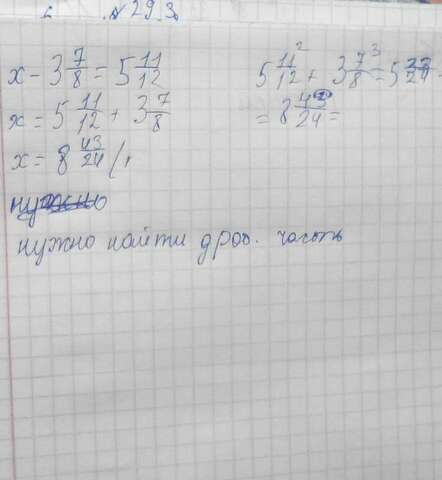 № 293
x - 3 7/8 = 5 11/12
x = 5 11/12 + 3 7/8
x = 8 43/24
5 11/12 + 3 7/8 = 5 22/24
= 8 43/24 =
нужно
нужно найти дроб. часть